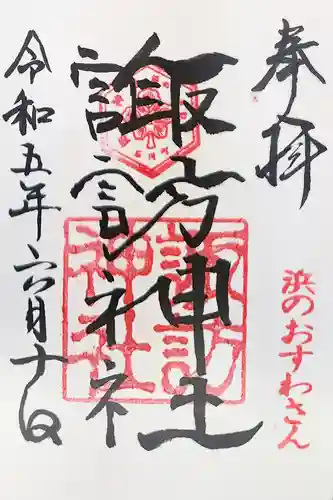 奉拝
浜のおすわさん
諏訪神社
諏訪
神社
令和五年六月十日